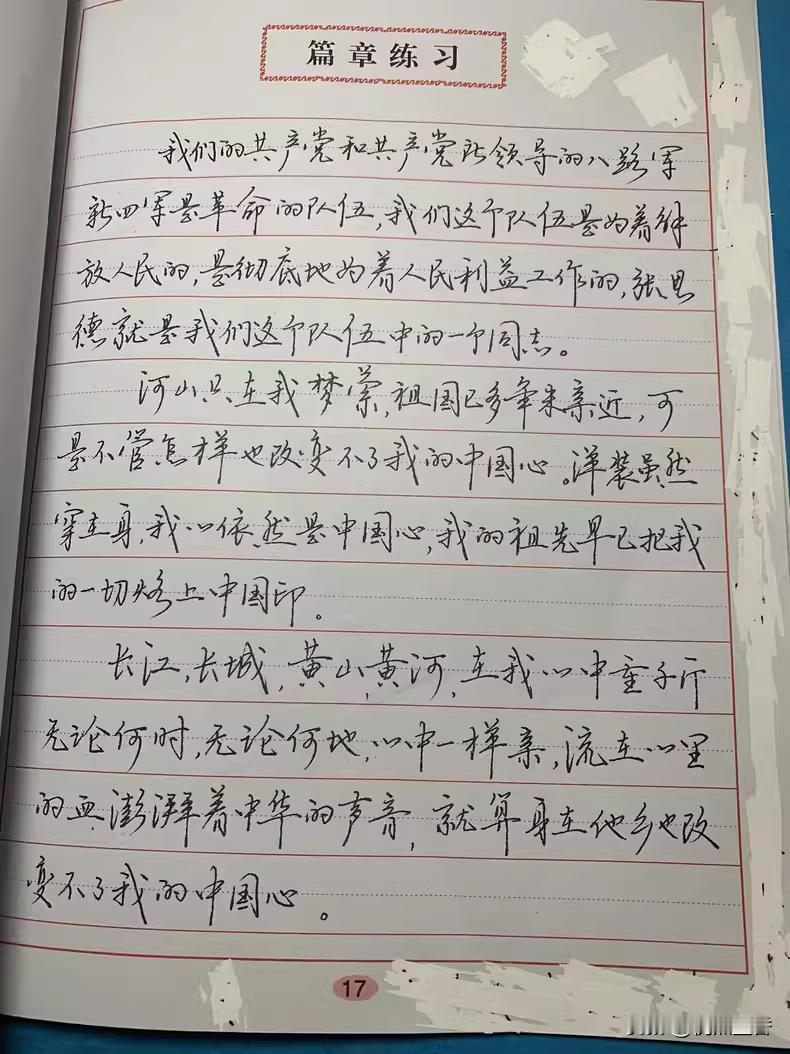 篇章练习
我们的共产党和共产党所领导的八路军
新四军是革命的队伍,我们这个队伍是为着解
放人民的,是彻底地为着人民利益工作的,张思
德就是我们这个队伍中的一个同志。
河山只在我梦萦,祖国已多年未亲近,可
是不管怎样也改变不了我的中国心。洋装虽然
穿在身,我心依然是中国心,我的祖先早已把我
的一切烙上中国印。
长江,长城,黄山,黄河,在我心中重千斤
无论何时,无论何地,心中一样亲,流在心里
的血,澎湃着中华的声音,就算身在他乡也改
变不了我的中国心。
17